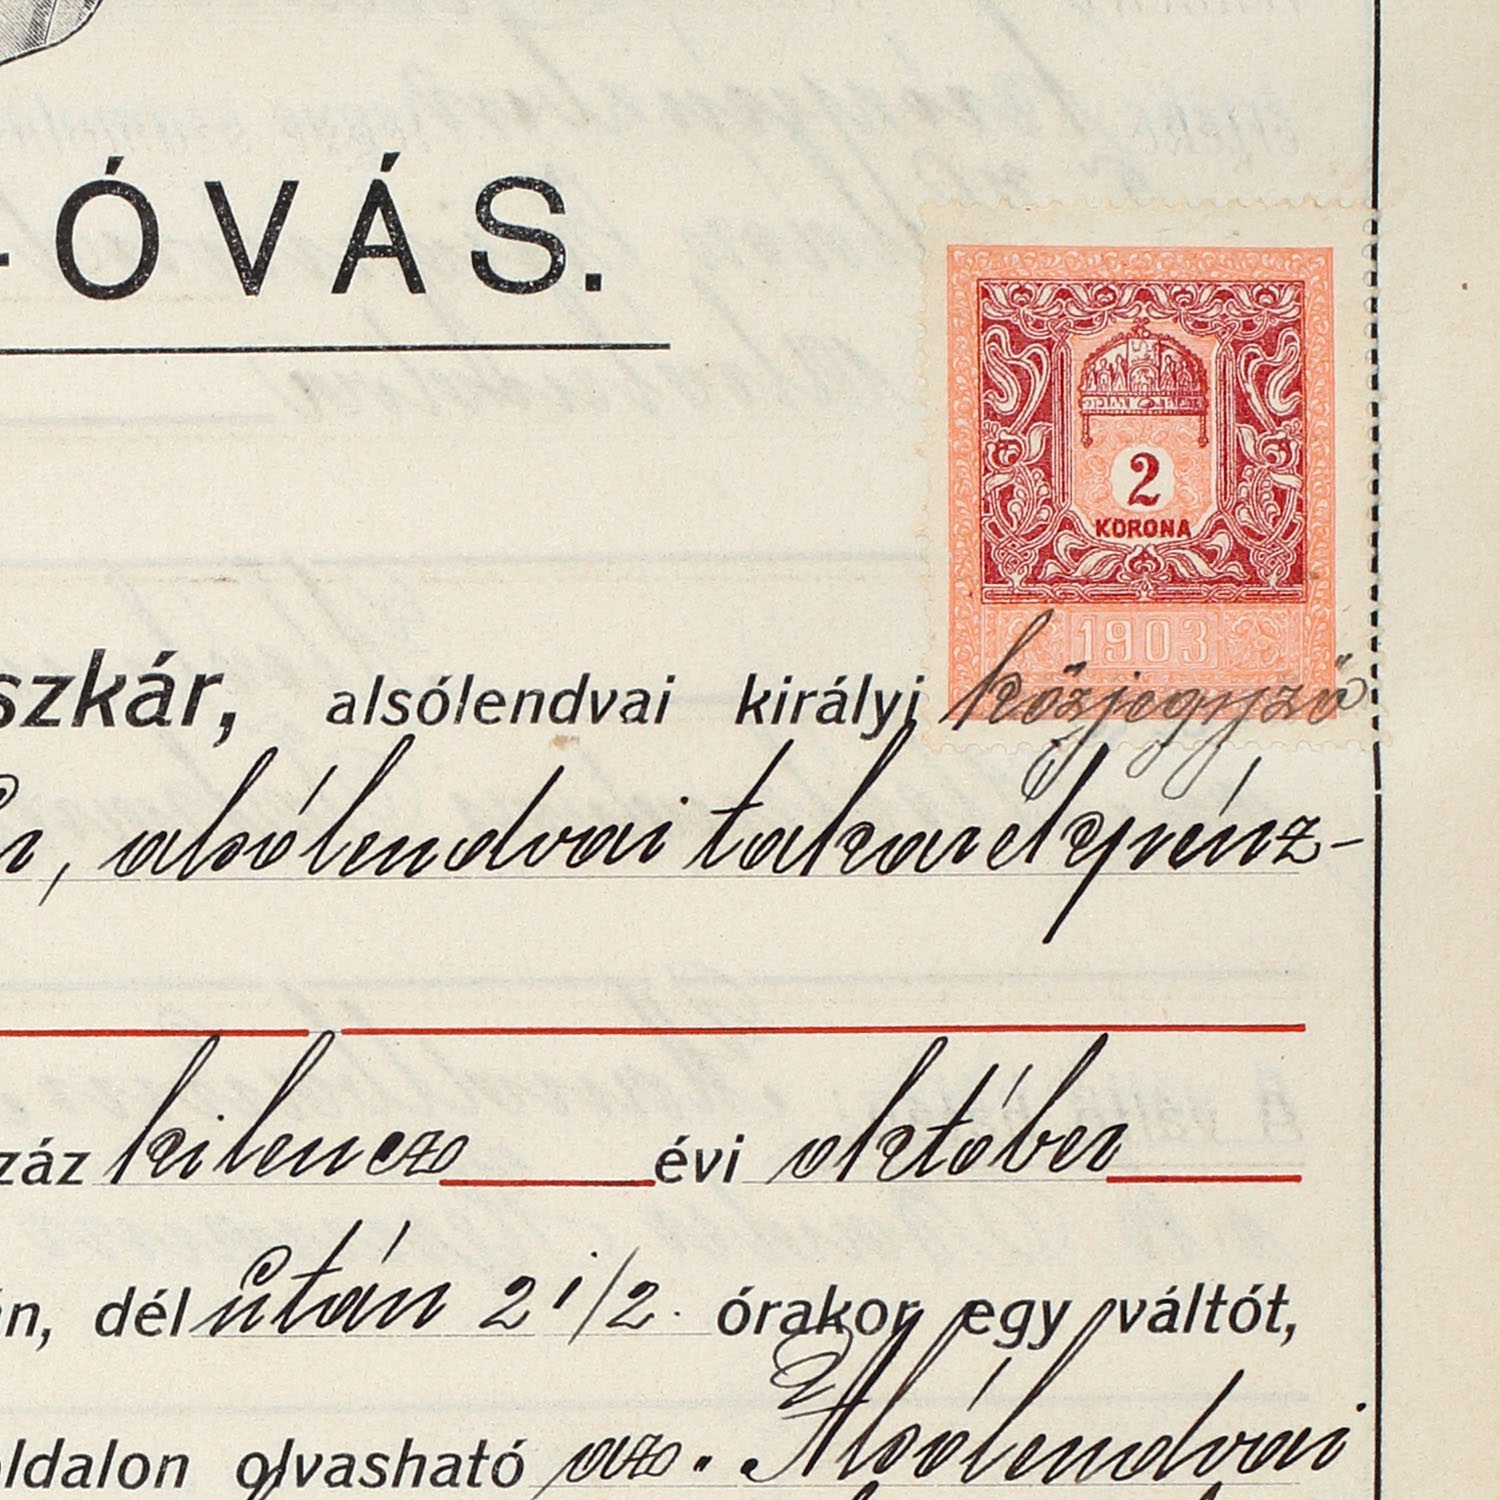 -ÓVÁS.
2
KORONA
1903
szkár, alsólendvai királyi közjegyző
, alsólendvai takarékpénz-
záz kilencz évi október
n, dél után 2 1/2. órakor egy váltót,
oldalon olvasható az. Alsólendvai